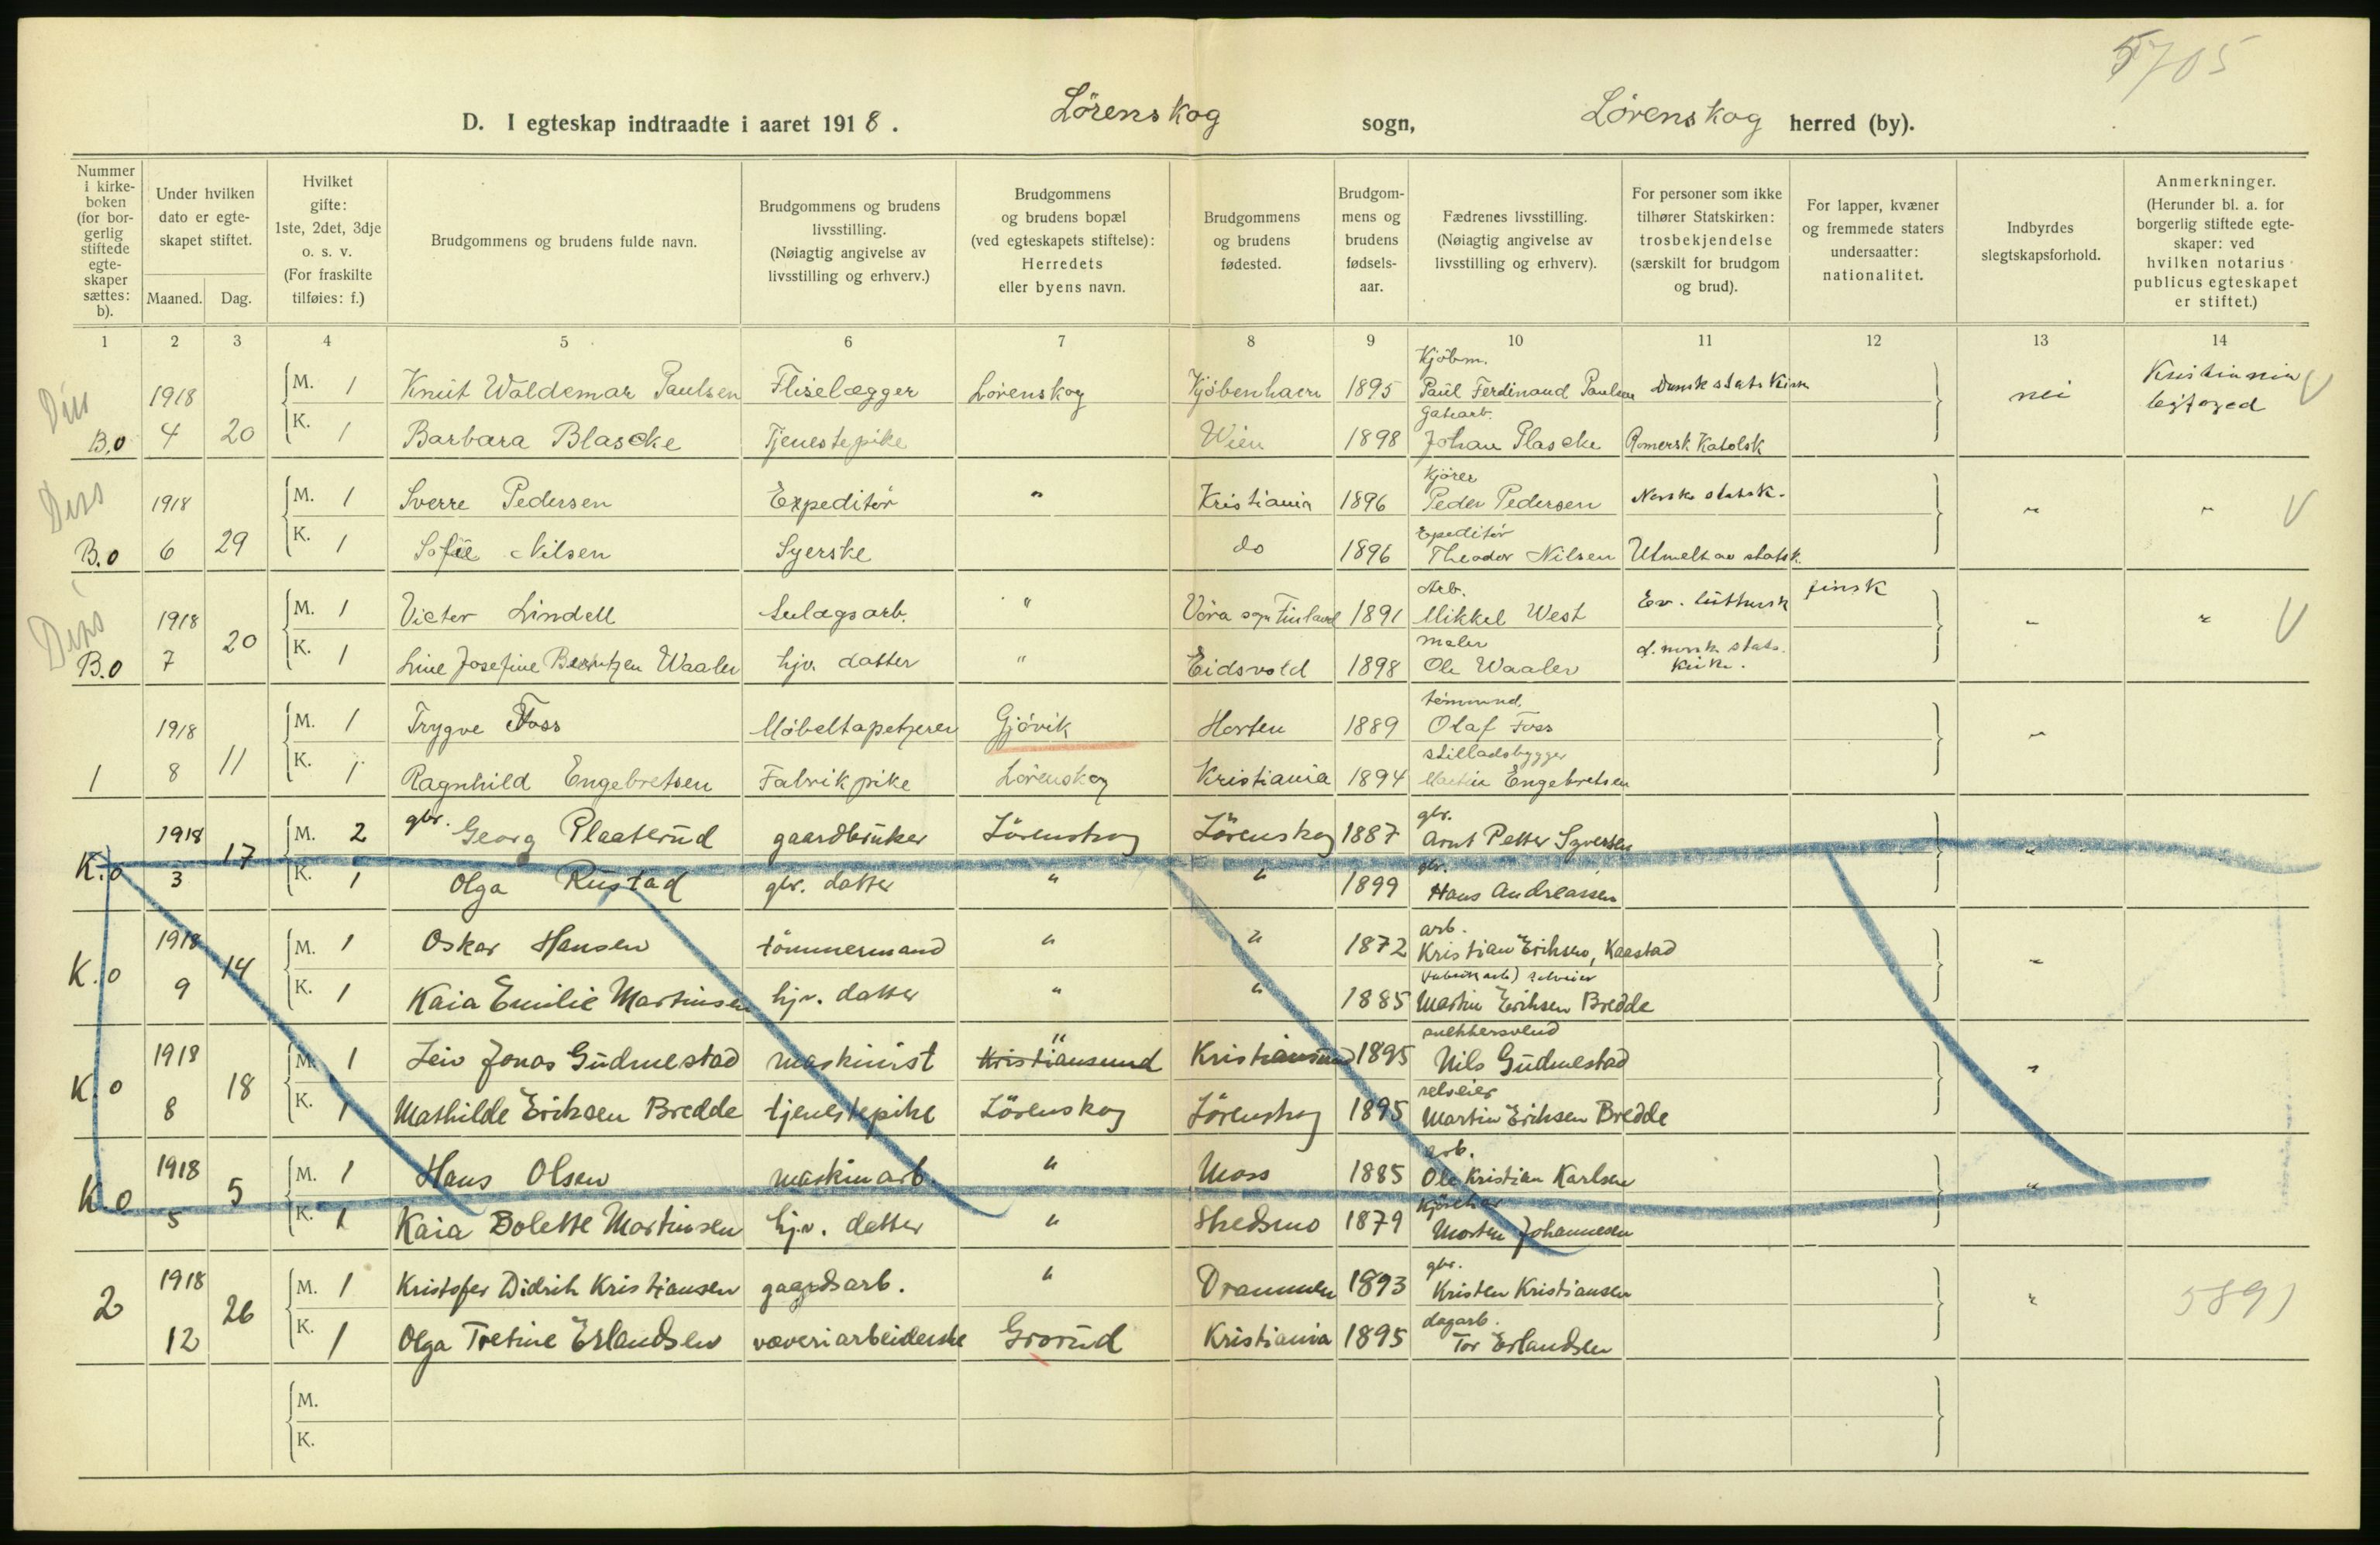 5705
D. I egteskap indtraadte i aaret 1918. Lörenskog sogn, Lörenskog herred (by).
Nummer i kirke-boken (for bor-gerlig stiftede egte-skaper sættes: b).
Under hvilken dato er egte-skapet stiftet.
Maaned. Dag.
Hvilket gifte: 1ste, 2det, 3dje o. s. v. (For fraskilte tilføies: f.)
Brudgommens og brudens fulde navn.
Brudgommens og brudens livsstilling. (Nøiagtig angivelse av livsstilling og erhverv.)
Brudgommens og brudens bopæl (ved egteskapets stiftelse): Herredets eller byens navn.
Brudgommens og brudens fødested.
Brudgom-mens og brudens fødsels-aar.
Fædrenes livsstilling. (Nøiagtig angivelse av livsstilling og erhverv).
For personer som ikke tilhører Statskirken: trosbekjendelse (særskilt for brudgom og brud).
For lapper, kvæner og fremmede staters undersaatter: nationalitet.
Indbyrdes slegtskapsforhold.
Anmerkninger. (Herunder bl. a. for borgerlig stiftede egte-skaper: ved hvilken notarius publicus egteskapet er stiftet.)
1 2 3 4 5 6 7 8 9 10 11 12 13 14
Kjöbm.
1918 M. 1 Knut Waldemar Paulsen Fliselægger Lörenskog Kjöbenhavn 1895 Paul Ferdinand Paulsen Dansk stats Kirke nei Kristiania byfoged V
Gatearb.
B.o 4 20 K. 1 Barbara Blascke Tjenestepike Wien 1898 Johan Plascke Romersk Katolsk
Kjörer
1918 M. 1 Sverre Pedersen Expeditör " Kristiania 1896 Peder Pedersen Norske statsk. " " V
Expeditör
B.o 6 29 K. 1 Sofie Nilsen Syerske do 1896 Theodor Nilsen Utmeldt av statsk.
Arb.
1918 M. 1 Victor Lindell Sulagsarb. " Vöra sogn Finland 1891 Mikkel West Ev. luthersk finsk " " V
Maler
B.o 7 20 K. 1 Line Josefine Berntzen Waaler hjv. datter " Eidsvold 1898 Ole Waaler d. norske stats Kirke.
tömmmd.
1918 M. 1 Trygve Foss Möbeltapetzerer Gjövik Horten 1889 Olaf Foss "
stilladsbygger
1 8 11 K. 1 Ragnhild Engebretsen Fabrikpike Lörenskog Kristiania 1894 Martin Engebretsen
gbr. gbr.
1918 M. 2 Georg Plaaterud gaardbruker Lörenskog Lörenskog 1887 Arnt Petter Syversen "
gbr.
K.o 3 17 K. 1 Olga Rustad gbr. datter " " 1899 Hans Andreassen
arb.
1918 M. 1 Oskar Hansen tömmermand " " 1872 Kristian Eriksen, Kaastad "
(fabrikarb) selveier
K.o 9 14 K. 1 Kaia Emilie Martinsen hjv. datter " " 1885 Martin Eriksen Bredde
snekkersvend
1918 M. 1 Leiv Jonas Gudmestad maskinist " Kristiansund Kristiansund 1895 Nils Gudmestad "
selveier
K.o 8 18 K. 1 Mathilde Eriksen Bredde tjenestepike Lörenskog Lörenskog 1895 Martin Eriksen Bredde
arb.
1918 M. 1 Hans Olsen maskinarb. " Moss 1885 Ole Kristian Karlsen "
K.o 5 5 K. 1 Kaia Bolette Martinsen hjv. datter " Skedsmo 1879 Morten Johannesen
gbr.
1918 M. 1 Kristofer Didrik Kristiansen gaardsarb. " Drammen 1893 Kristen Kristiansen " 5891
dagarb.
2 12 26 K. 1 Olga Tretine Erlandsen væveriarbeiderske Grorud Kristiania 1895 Tor Erlandsen
M.
K.